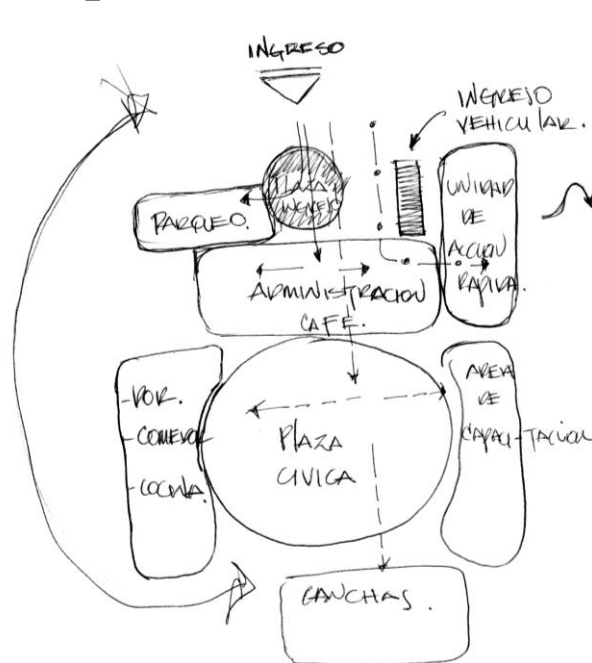 INGRESO
INGRESO
VEHICULAR.
PLAZA
INGRESO
PARQUEO.
UNIDAD
DE
ACCION
RAPIDA.
ADMINISTRACION
CAFE.
-DOR.
-COMEDOR
-COCINA.
PLAZA
CIVICA
AREA
DE
CAPACITACION
CANCHAS.